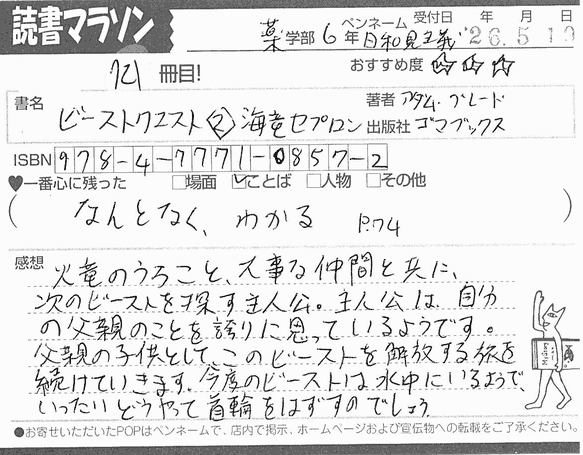 読書マラソン
薬学部6年 ペンネーム 日和見主義 受付日 '26年5月10日
721冊目! おすすめ度 ☆☆☆
書名 ビーストクエスト② 海竜セプロン
著者 アダム・ブレード
出版社 ゴマブックス
ISBN 978-4-7771-0857-2
♥一番心に残った □場面 ☑ことば □人物 □その他
(なんとなく、わかる P.74)
感想
火竜のうろこと、大事な仲間と共に、
次のビーストを探す主人公。主人公は、自分
の父親のことを誇りに思っているようです。
父親の子供として、このビーストを解放する旅を
続けていきます。今度のビーストは水中にいるようで、
いったいどうやって首輪をはずすのでしょう
●お寄せいただいたPOPはペンネームで、店内で掲示、ホームページおよび宣伝物への転載をご了承ください。